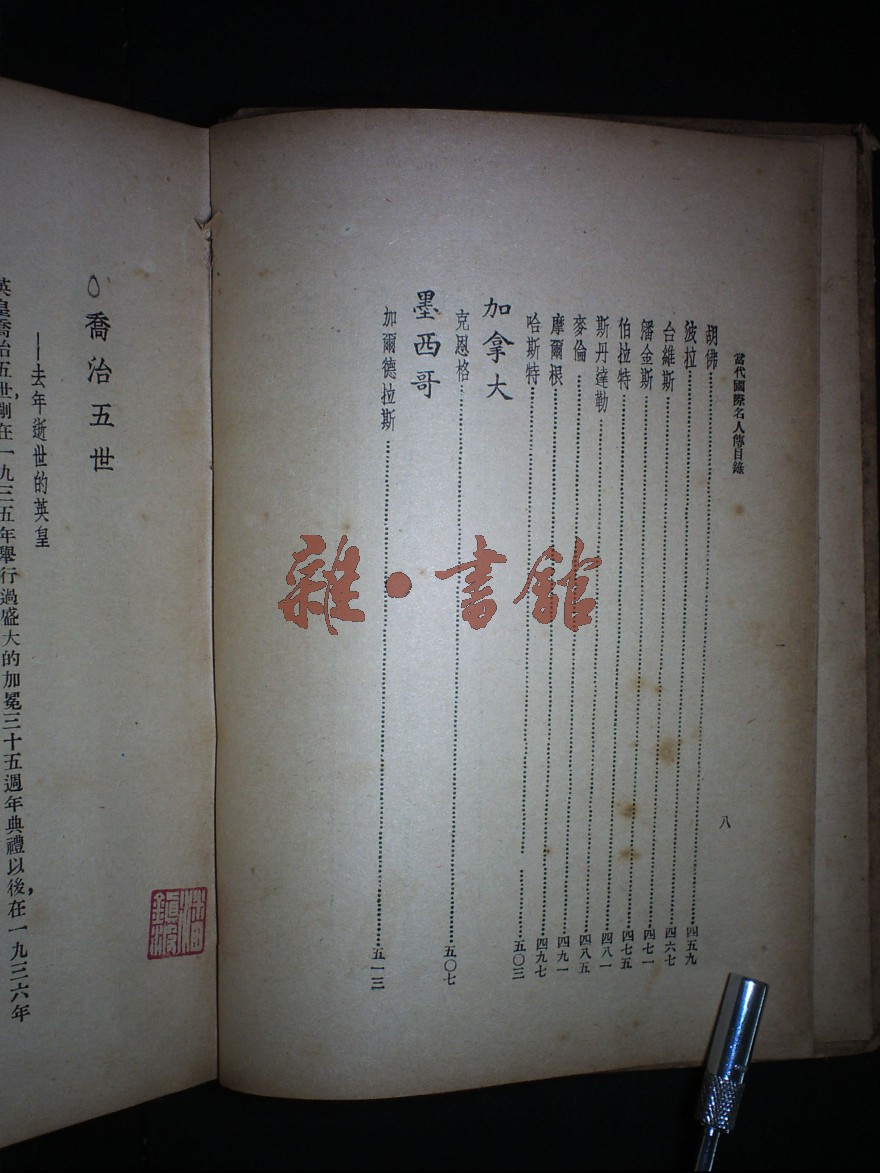 當代國際名人傳目錄
八
胡佛……四五九
波拉……四六七
台維斯……四七一
潘金斯……四七五
伯拉特……四八一
斯丹達勒……四八五
麥倫……四九一
摩爾根……四九七
哈斯特……五〇三
加拿大
克恩格……五〇七
墨西哥
加爾德拉斯……五一三
喬治五世
——去年逝世的英皇
英皇喬治五世,剛在一九三五年舉行過盛大的加冕三十五週年典禮以後,在一九三六年
雜·書館